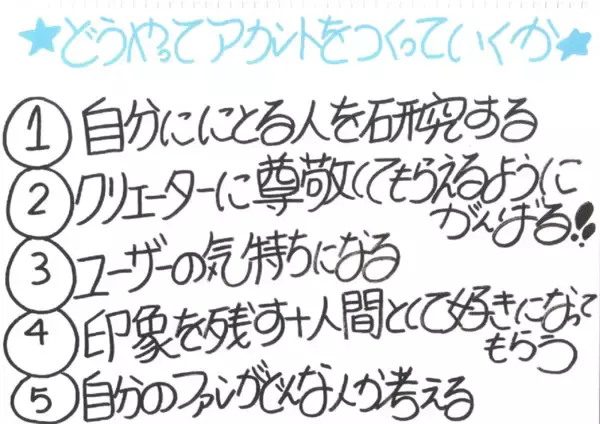 ★どうやってアカントをつくっていくか★
① 自分ににとる人を研究する
② クリエーターに尊敬してもらえるように
がんばる!!
③ ユーザーの気持ちになる
④ 印象を残す+人間として好きになって
もらう
⑤ 自分のファンがどんな人か考える